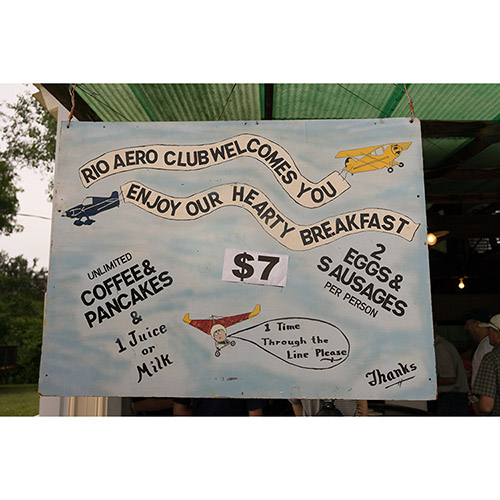 RIO AERO CLUB WELCOMES YOU
ENJOY OUR HEARTY BREAKFAST
UNLIMITED
COFFEE &
PANCAKES
&
1 Juice
or
Milk
$7
2
EGGS &
SAUSAGES
PER PERSON
1 Time
Through the
Line Please
Thanks